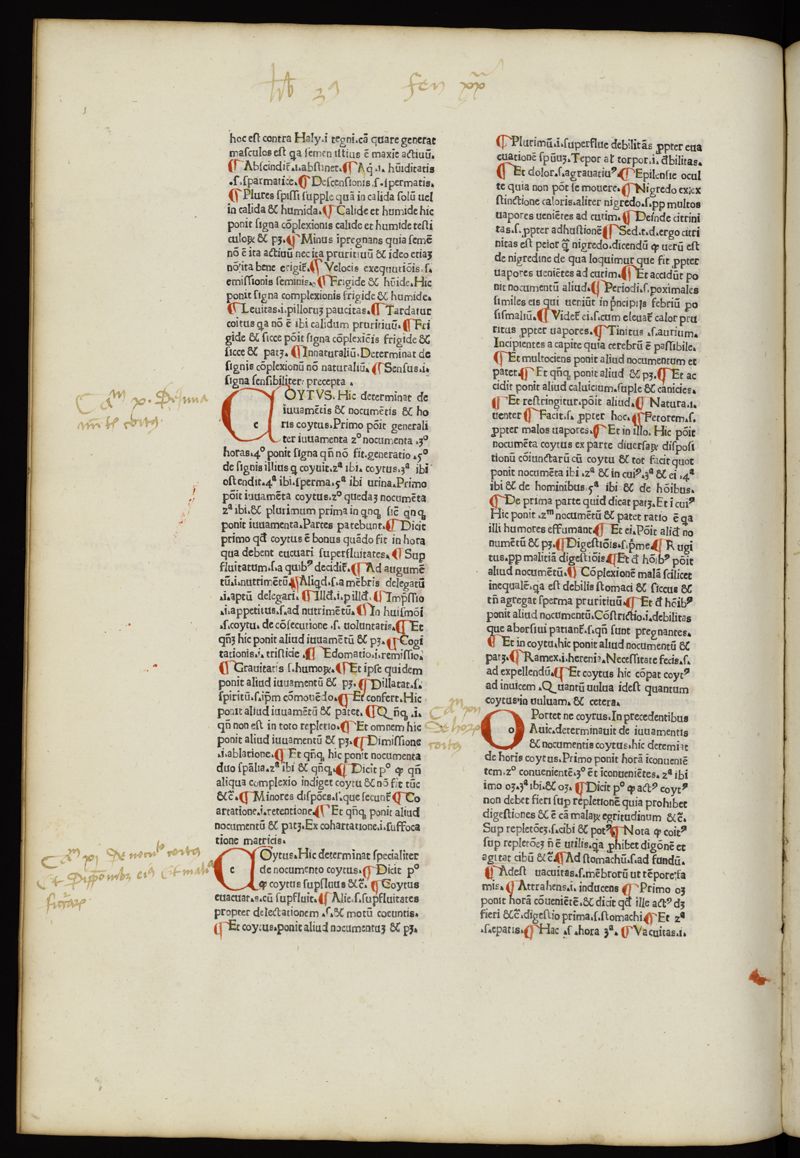 lib 3ꝯ fen xx
hoc est contra Haly.i tegni.cā quare generat
masculos est qa semen illius ē maxīe actiuū.
¶ Abscindiť.i.abstinet.¶ Aq̃.i. hūiditatis
.s.sparmatice.¶ Descensionis.s.spermatis.
¶ Plures spissi supple quā in calida solū uel
in calida & humida.¶ Calide et humide hic
ponit signa cōplexionis calide et humide testi
culoꝝ & pʒ.¶ Minus īpregnans quia semē
nō ē ita actiuū nec ita pruritiuū & ideo etiaʒ
nō ita bene erigiť.¶ Velocis exequutiōis.s.
emissionis seminis.¶ Frigide & hōide.Hic
ponit signa complexionis frigide & humide.
¶ Leuitas.i.pilloruʒ paucitas.¶ Tardatur
coitus qa nō ē ibi calidum pruritiuū.¶ Fri
gide & sicce pōit signa cōplexiōis frigide &
sicce & patʒ.¶ Innaturaliū.Determinat de
signis cōplexionū nō naturaliū.¶ Sensus.i.
signa sensibiliter precepta .
COYTVS. Hic determinat de
iuuamētis & nocumētis & ho
ris coytus.Primo pōit generali
ter iuuamenta 2o nocumenta .3o
horas.4o ponit signa qñ nō fit.generatio .5o
de signis illius q coyuit.2a ibi. coytus.3a ibi
ostendit.4a ibi.sperma.5a ibi urina.Primo
pōit iuuamēta coytus.2o quedaʒ nocumēta
2a ibi.& plurimum prima in qnqꝫ sic̄ qnqꝫ
ponit iuuamenta.Partes patebunt.¶ Dicit
primo qđ coytus ē bonus quādo fit in hora
qua debent euacuari superfluitates.¶ Sup
fluitatum.s.a quibꝰ decidiť.¶ Ad augumē
tū.i.nutrimētū.¶ Aliqđ.s.a mēbris delegatū
.i.aptū delegari.¶ Illđ.i.pillđ.¶ Imp̄ssio
.i.appetitus.s.ad nutrimētū.¶ In huiꝰmōi
.s.coytu.de cōsecutione .s. uoluntatis.¶ Et
qñʒ hic ponit aliud iuuamētū & pʒ.¶ Cogi
tationis.i.tristicie .¶ Edomatio.i.remissio.
¶ Grauitatis s.humoꝝ.¶ Et ipse quidem
ponit aliud iuuamentū & pʒ.¶ Dillatat.s.
spiritū.s.ip̄m cōmouēdo.¶ Et confert.Hic
ponit aliud iuuamētū & patet.¶ Qñqꝫ.i.
qñ non est in toto repletio.¶ Et omnem hic
ponit aliud iuuamentū & pʒ.¶ Dimissione
.i.ablatione.¶ Et qñqꝫ hic ponit nocumenta
duo sp̄alia.2a ibi & qñqꝫ.¶ Dicit po ꝙ qñ
aliqua complexio indiget coytu & nō fit tūc
&c̄.¶ Minores dispōes.s.que secunť ¶ Co
artatione.i.retentione.¶ Et qñqꝫ ponit aliud
nocumentū & patʒ.Ex cohartatione.i.suffoca
tione matricis.
COytus.Hic determinat specialiter
de nocumento coytus.¶ Dicit po
ꝙ coytus supfluus &c̄.¶ Coytus
euacuat.s.cū supfluit.¶ Alie.s.supfluitates
propter delectationem .s.& motū coeuntis.
¶ Et coytus.ponit aliud nocumentuʒ & pʒ.
¶ Plurimū.i.superflue debilitās ꝓpter eua
cuationē spūuʒ.Tepor at torpor.i.đbilitas.
¶ Et dolor.s.agrauatiuꝰ.¶ Epilensie ocul
te quia non pōt se mouere.¶ Nigredo ex ex
stinctione caloris.aliter nigredo.s.pp multos
uapores ueniētes ad cutim.¶ Deinde citrini
tas.s.ꝓpter adhustionē ¶ Sed.t.d.ergo citri
nitas est peior q̄ nigredo.dicendū ꝙ uerū est
de nigredine de qua loquimur que fit ꝓpter
uapores ueniētes ad cutim.¶ Et accidūt po
nit nocumentū aliud.¶ Periodi.s.poximales
similes eis qui ueniūt in p̄ncipijs febriū po
sismaliū.¶ Videť ei.s.cum eleuať calor pru
ritus ꝓpter uapores.¶ Tinitus .s.aurium.
Incipientes a capite quia cerebrū ē passibile.
¶ Et multociens ponit aliud nocumentum et
patet.¶ Et qñqꝫ ponit aliud & pʒ.¶ Et ac
cidit ponit aliud caluicium.suple & canicies.
¶ Et restringitur.pōit aliud.¶ Natura.i.
uenter ¶ Facit.s. ꝓpter hoc.¶ Fetorem.s.
ꝓpter malos uapores.¶ Et in illo. Hic pōit
nocumēta coytus ex parte diuersaꝝ disposi
tionū cōiunctarū cū coytu & tot facit quot
ponit nocumēta ibi .2a & in cuiꝰ.3a & ei .4a
ibi & de hominibus.5a ibi & de hōibus.
¶ De prima parte quid dicat patʒ.Et ī cuiꝰ
Hic ponit .2m nocumentū & patet ratio ē qa
illi humores effumant ¶ Et ei.Pōit aliđ no
numētū & pʒ.¶ Digestiōis.s.p̄me.¶ Rugi
tus.pp malitiā digestiōis.¶ Et đ hōibꝰ pōit
aliud nocumētū.¶ Cōplexionē malā scilicet
inequalē.qa est debilis stomaci & siccus &
tñ agregat sperma pruritiuū.¶ Et đ hōibꝰ
ponit aliud nocumentū.Cōstrictio.i.debilitas
que aborsiui patiunť.s.qñ sunt pregnantes.
¶ Et in coytu.hic ponit aliud nocumentū &
patʒ.¶ Ramex.i.hernia.Necessitate fecis.s.
ad expellendū.¶ Et coytus hic cōpat coytꝰ
ad inuicem .Quantū uulua idest quantum
coytus in uuluam.& cetera.
OPortet ne coytus.In precedentibus
Auic.determinauit de iuuamentis
& nocumentis coytus.hic determiat
de horis coytus.Primo ponit horā īconueniē
tem.2o conuenientē.3o ēt īconueniētes. 2a ibi
imo oʒ.3a ibi.& oʒ. ¶ Dicit po ꝙ actꝰ coytꝰ
non debet fieri sup repletionē quia prohibet
digestiones & ē cā malaꝝ egritudinum &c̄.
Sup repletōeʒ.s.cibi & potꝰ.¶ Nota ꝙ coitꝰ
sup repletōeʒ ñ ē utilis.qa ꝓhibet digōnē et
agitat cibū &c̄.¶ Ad stomachū.s.ad fundū.
¶ Adest uacuitas.s.mēbrorū ut tēpore fa
mis.¶ Attrahens.i. inducens ¶ Primo oʒ
ponit horā cōueniētē.& dicit qđ ille actꝰ dʒ
fieri &c̄.digestio prima.s.stomachi ¶ Et 2a
.s.epatis.¶ Hac .s .hora 3a.¶ Vacuitas.i.